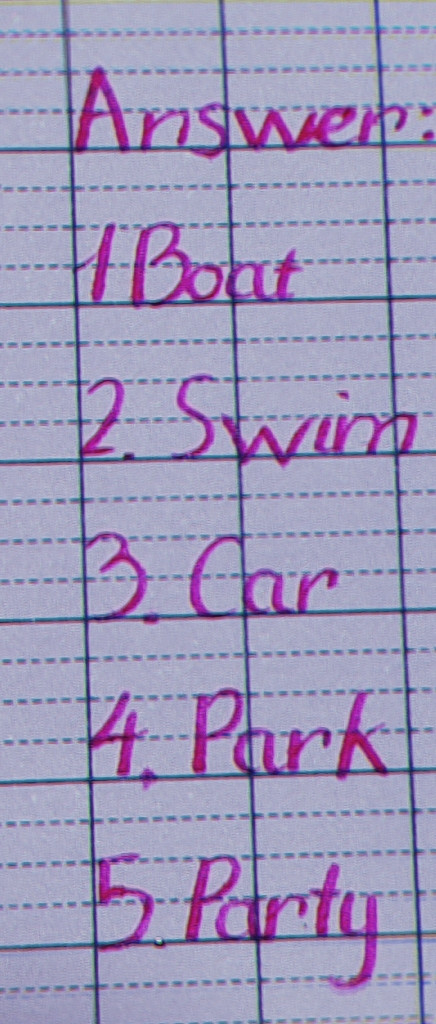 Answer:
1 Boat
2. Swim
3. Car
4. Park
5. Party